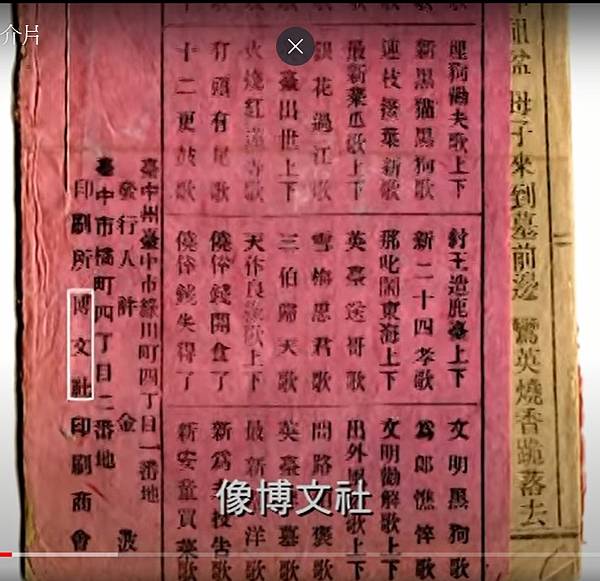 介片
祖盆 母子來到墓前邊 鸞英燒香跪落去
狗勸夫歌上下
新黑猫黑狗歌
連枝接葉新歌
最新瓜歌上下
花過江歌
臺出世上下
火燒紅蓮寺歌
有頭有尾歌
十二更鼓歌
紂王造鹿臺上下
新二十四孝歌
那叱鬧東海上下
英臺送哥歌
雪梅思君歌
三伯歸天歌
天作良緣歌上下
僥倖錢開食了
僥倖錢失得了
文明黑狗歌
為郎憔悴歌
文明勸解歌上下
出外歌上下
問路褒歌
英臺墓歌
最新洋歌
新為投告歌
新安童買菜歌
臺中州臺中市綠川町四丁目一番地
發行人 許金波
臺中市橘町四丁目二番地
印刷所 博文社印刷商會
像博文社